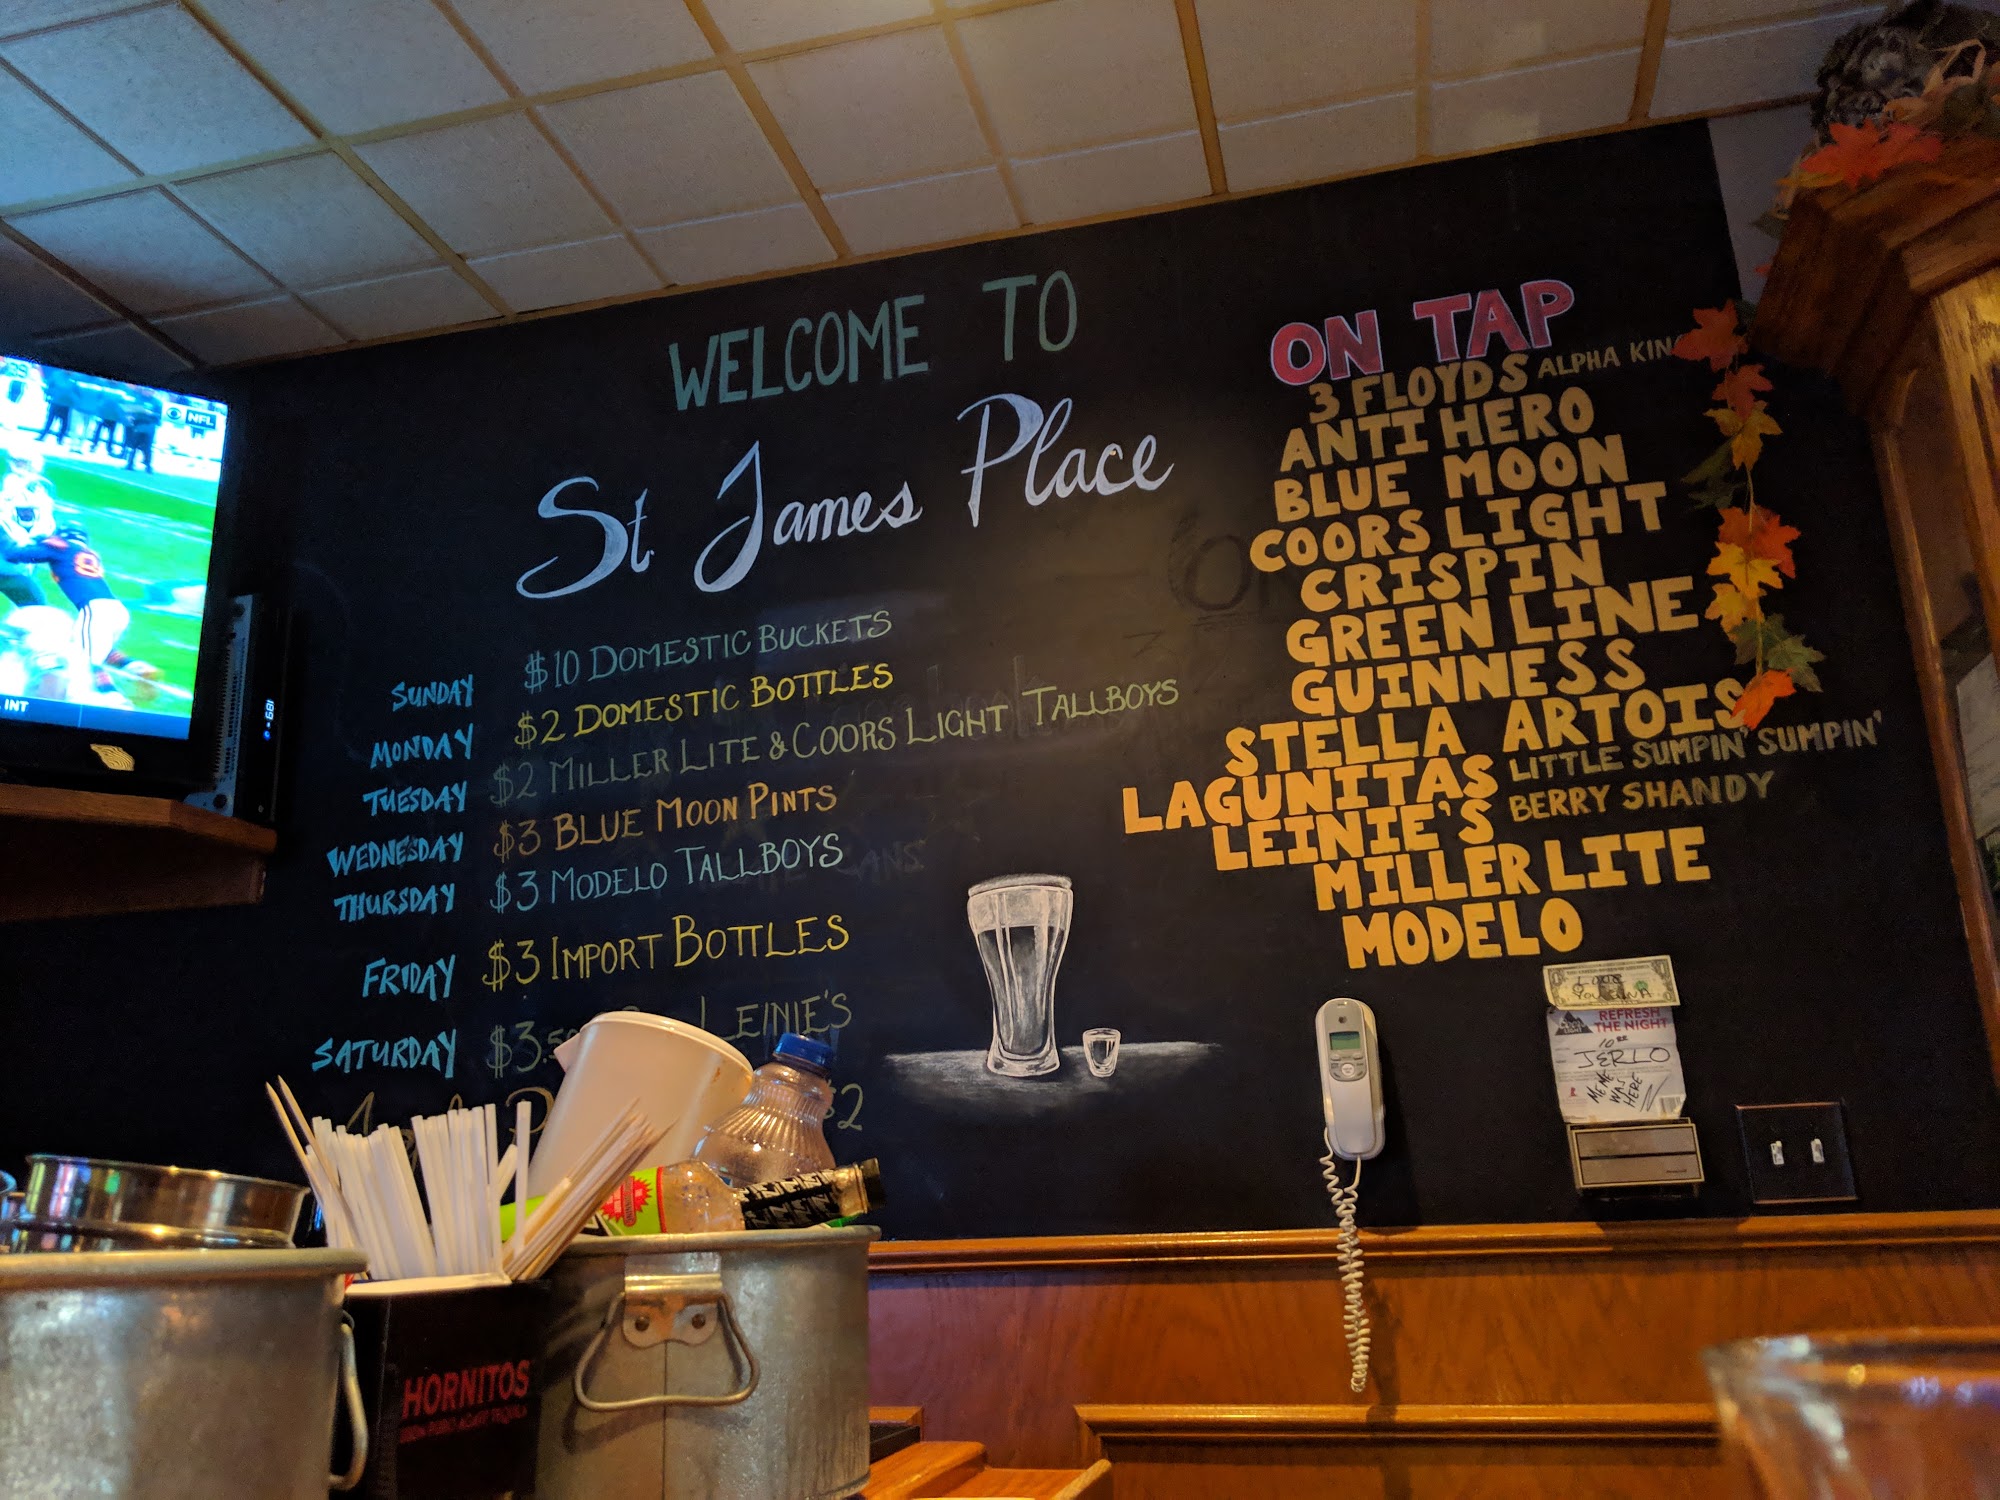 WELCOME TO
St. James Place
SUNDAY $10 DOMESTIC BUCKETS
MONDAY $2 DOMESTIC BOTTLES
TUESDAY $2 MILLER LITE & COORS LIGHT TALLBOYS
WEDNESDAY $3 BLUE MOON PINTS
THURSDAY $3 MODELO TALLBOYS
FRIDAY $3 IMPORT BOTTLES
SATURDAY $3.50 LEINIE'S
$2
ON TAP
3 FLOYDS ALPHA KIN
ANTI HERO
BLUE MOON
COORS LIGHT
CRISPIN
GREEN LINE
GUINNESS
STELLA ARTOIS
LAGUNITAS LITTLE SUMPIN' SUMPIN'
LEINIE'S BERRY SHANDY
MILLER LITE
MODELO
REFRESH
THE NIGHT
JERLO
MEME
WAS
HERE
NFL
INT
HORNITOS